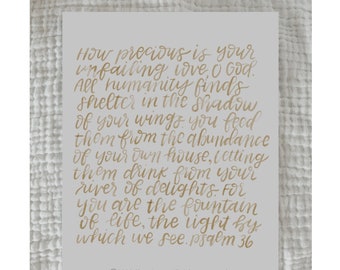 How precious is your
unfailing love, O God.
All humanity finds
shelter in the shadow
of your wings you feed
them from the abundance
of your own house, letting
them drunk from your
river of delights For
you are the fountain
of life, the light by
which we see. psalm 36